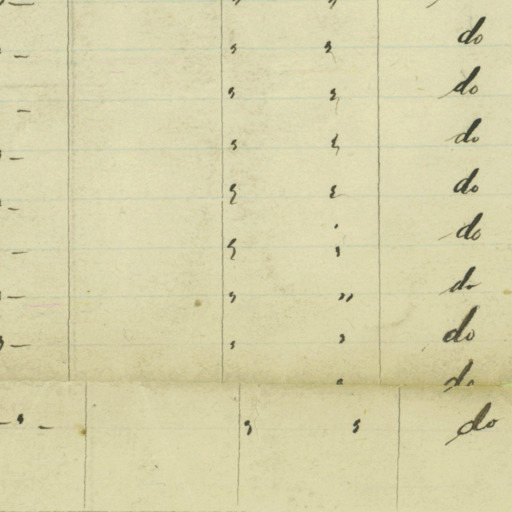 — " " do
— " " do
— " " do
— " " do
— " " do
— " " do
— " " do
— " " do
" do
— " — " " do